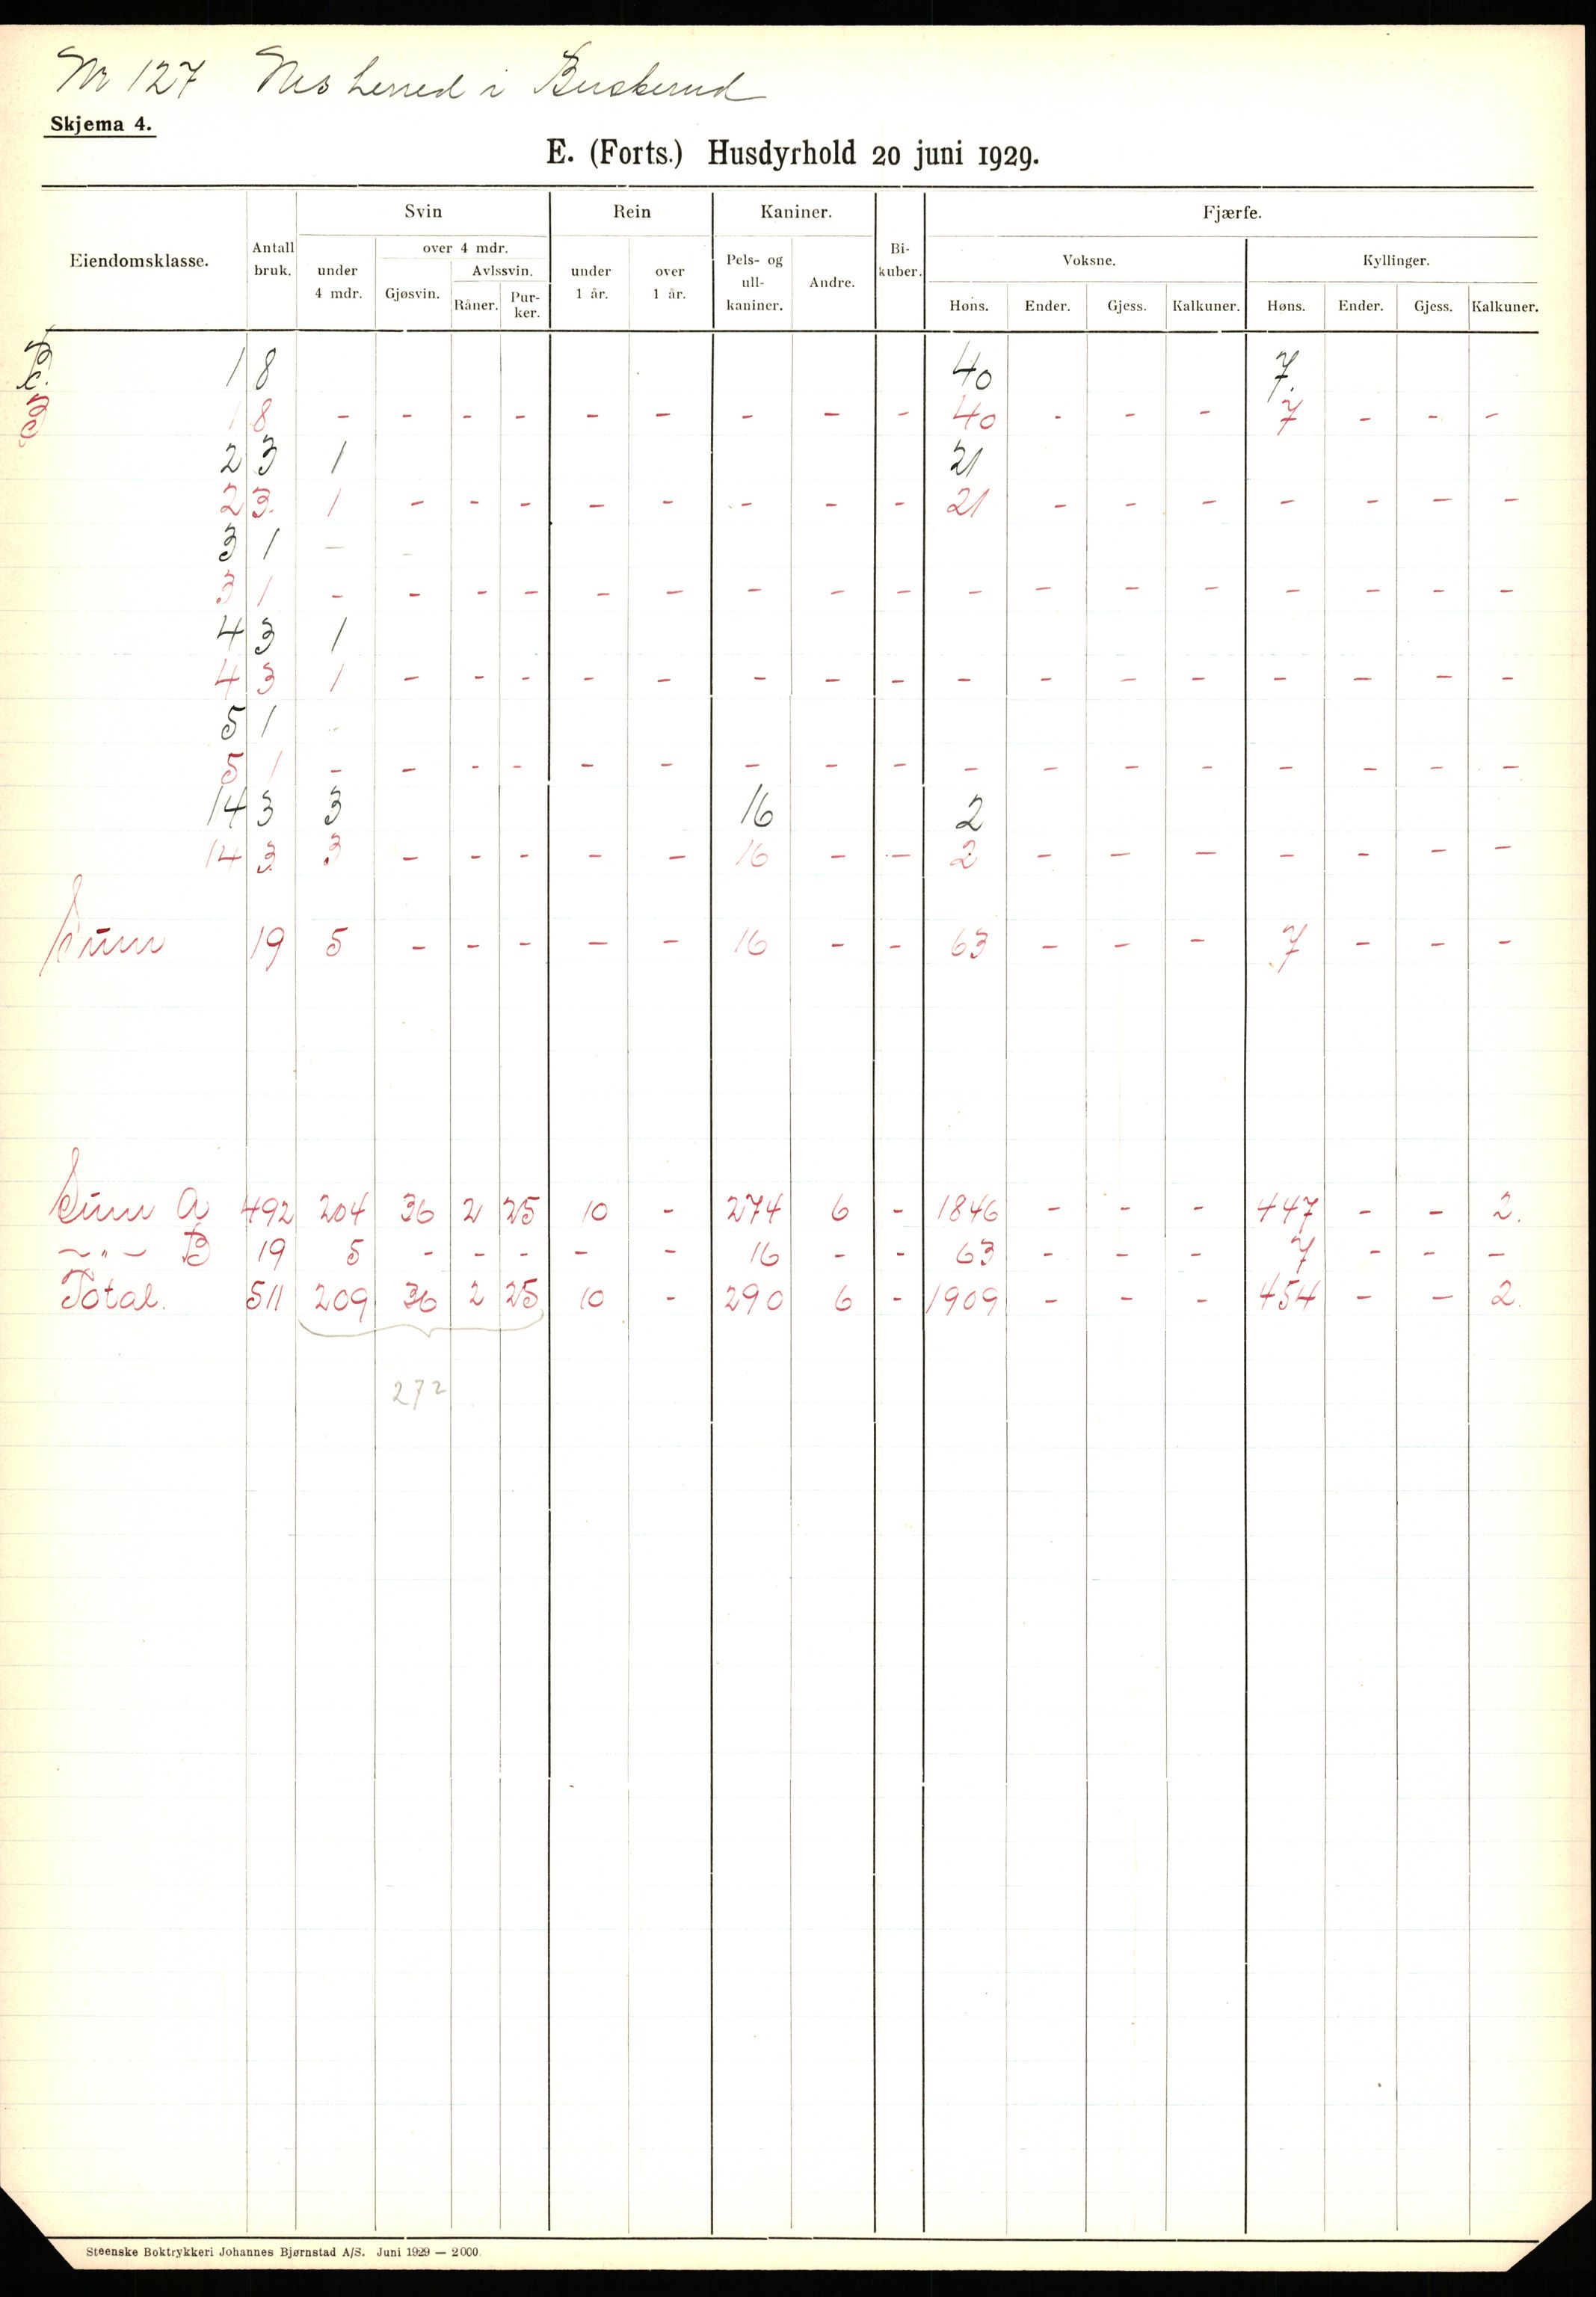 Nr 127 Nes herred i Buskerud
Skjema 4.
E. (Forts.) Husdyrhold 20 juni 1929.
Eiendomsklasse. Antall bruk. Svin Rein Kaniner. Bi-kuber. Fjærfe.
under 4 mdr. over 4 mdr. under 1 år. over 1 år. Pels- og ull-kaniner. Andre. Voksne. Kyllinger.
Gjøsvin. Avlssvin. Råner. Pur-ker. Høns. Ender. Gjess. Kalkuner. Høns. Ender. Gjess. Kalkuner.
B 1 8 40 7.
B 1 8 - - - - - - - - - 40 - - - 7 - - -
2 3 1 21
2 3. 1 - - - - - - - - 21 - - - - - - -
3 1 - -
3 1 - - - - - - - - - - - - - - - - -
4 3 1
4 3 1 - - - - - - - - - - - - - - - -
5 1 -
5 1 - - - - - - - - - - - - - - - - -
14 3 3 16 2
14 3. 3 - - - - - 16 - - 2 - - - - - - -
Sum 19 5 - - - - - 16 - - 63 - - - 7 - - -
Sum A 492 204 36 2 25 10 - 274 6 - 1846 - - - 447 - - 2.
- " - B 19 5 - - - - - 16 - - 63 - - - 7 - - -
Total. 511 209 36 2 25 10 - 290 6 - 1909 - - - 454 - - 2.
272
Steenske Boktrykkeri Johannes Bjørnstad A/S. Juni 1929 — 2000.